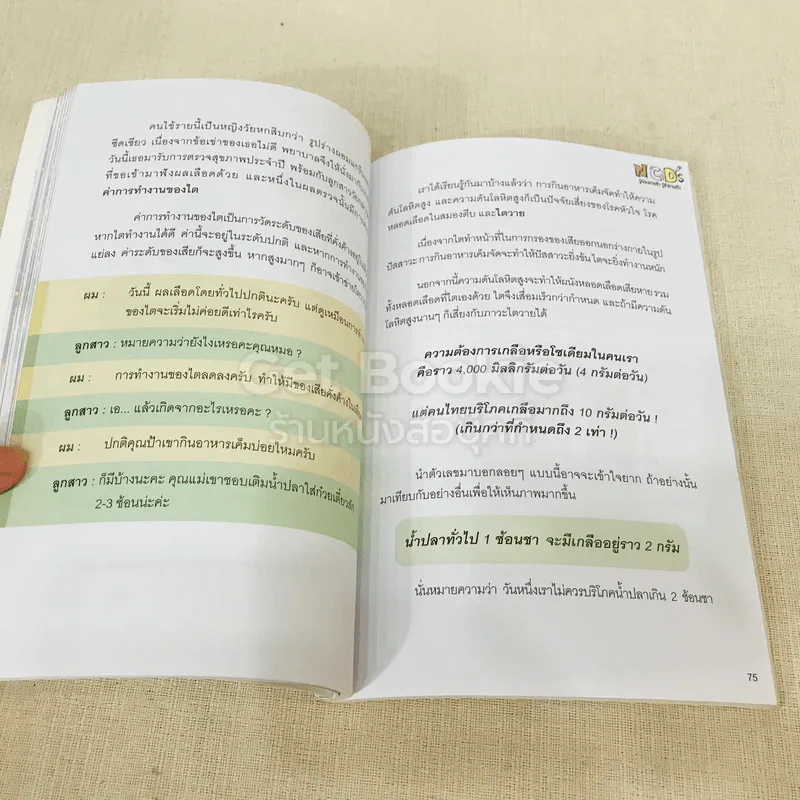 คนไข้รายนี้เป็นหญิงวัยหกสิบกว่า รูปร่างผอมแกร็น
ซีดเซียว เนื่องจากข้อเข่าของเธอไม่ดี พยาบาลจึงให้นั่งมา
วันนี้เธอมารับการตรวจสุขภาพประจำปี พร้อมกับลูกสาว
ที่ขอเข้ามาฟังผลเลือดด้วย และหนึ่งในผลตรวจนั้นมี
ค่าการทำงานของไต
ค่าการทำงานของไตเป็นการวัดระดับของเสียที่คั่งค้างอยู่ใน
หากไตทำงานได้ดี ค่านี้จะอยู่ในระดับปกติ และหากการทำงาน
แย่ลง ค่าระดับของเสียก็จะสูงขึ้น หากสูงมากๆ ก็อาจเข้าข่าย
ผม : วันนี้ ผลเลือดโดยทั่วไปปกตินะครับ แต่ดูเหมือนการ
ของไตจะเริ่มไม่ค่อยดีเท่าไรครับ
ลูกสาว : หมายความว่ายังไงเหรอคะคุณหมอ ?
ผม : การทำงานของไตลดลงครับ ทำให้มีของเสียคั่งค้างใน
ลูกสาว : เอ... แล้วเกิดจากอะไรเหรอคะ ?
ผม : ปกติคุณป้าเขากินอาหารเค็มบ่อยไหมครับ
ลูกสาว : ก็มีบ้างนะคะ คุณแม่เขาชอบเติมน้ำปลาใส่ก๋วยเตี๋ยวสัก
2-3 ช้อนน่ะค่ะ
NCDs
เราได้เรียนรู้กันมาบ้างแล้วว่า การกินอาหารเค็มจัดทำให้ความ
ดันโลหิตสูง และความดันโลหิตสูงก็เป็นปัจจัยเสี่ยงของโรคหัวใจ โรค
หลอดเลือดในสมองตีบ และไตวาย
เนื่องจากไตทำหน้าที่ในการกรองของเสียออกนอกร่างกายในรูป
ปัสสาวะ การกินอาหารเค็มจัดจะทำให้ปัสสาวะยิ่งข้น ไตจะยิ่งทำงานหนัก
นอกจากนี้ความดันโลหิตสูงจะทำให้ผนังหลอดเลือดเสียหาย รวม
ทั้งหลอดเลือดที่ไตเองด้วย ไตจึงเสื่อมเร็วกว่ากำหนด และถ้ามีความดัน
โลหิตสูงนานๆ ก็เสี่ยงกับภาวะไตวายได้
ความต้องการเกลือหรือโซเดียมในคนเรา
คือราว 4,000 มิลลิกรัมต่อวัน (4 กรัมต่อวัน)
Get Bookie
แต่คนไทยบริโภคเกลือมากถึง 10 กรัมต่อวัน !
ร้านหนังสือคุกกี้
(เกินกว่าที่กำหนดถึง 2 เท่า !)
นำตัวเลขมาบอกลอยๆ แบบนี้อาจจะเข้าใจยาก ถ้าอย่างนั้น
มาเทียบกับอย่างอื่นเพื่อให้เห็นภาพมากขึ้น
น้ำปลาทั่วไป 1 ช้อนชา จะมีเกลืออยู่ราว 2 กรัม
นั่นหมายความว่า วันหนึ่งเราไม่ควรบริโภคน้ำปลาเกิน 2 ช้อนชา
75